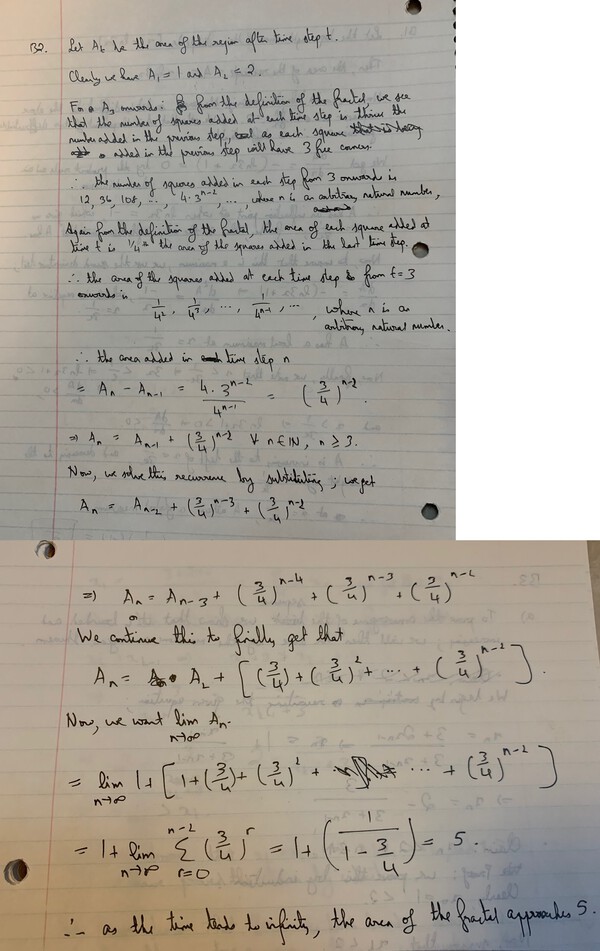 B2. Let At be the area of the region after time step t.
Clearly we have A₁ = 1 and A₂ = 2.
For A₃ onwards: from the definition of the fractal, we see
that the number of squares added at each time step is thrice the
number added in the previous step, as each square
added in the previous step will have 3 free corners.
∴ the number of squares added in each step from 3 onwards is
12, 36, 108, ..., 4·3ⁿ⁻², ..., where n is an arbitrary natural number,
Again from the definition of the fractal, the area of each square added at
time t is 1/4th the area of the squares added in the last time step.
∴ the area of the squares added at each time step from t=3
onwards is 1/4², 1/4³, ..., 1/4ⁿ⁻¹, ..., where n is a
arbitrary natural number.
∴ the area added in time step n
= An − An-1 = 4·3ⁿ⁻²/4ⁿ⁻¹ = (3/4)ⁿ⁻².
⇒ An = An-1 + (3/4)ⁿ⁻² ∀ n∈ℕ, n ≥ 3.
Now, we solve this recurrence by substituting; we get
An = An-2 + (3/4)ⁿ⁻³ + (3/4)ⁿ⁻²
⇒ An = An-3 + (3/4)ⁿ⁻⁴ + (3/4)ⁿ⁻³ + (3/4)ⁿ⁻²
We continue this to finally get that
An = A₂ + [(3/4) + (3/4)² + ... + (3/4)ⁿ⁻²].
Now, we want lim n→∞ An.
= lim n→∞ 1 + [1 + (3/4) + (3/4)² + ... + (3/4)ⁿ⁻²]
= 1 + lim n→∞ Σ r=0 n-2 (3/4)ʳ = 1 + (1/(1 − 3/4)) = 5.
∴ as the time tends to infinity, the area of the fractal approaches 5.